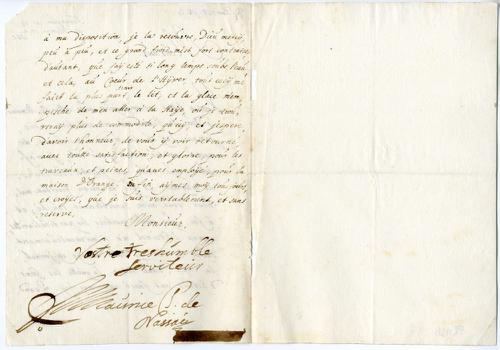 à ma disposition, je la resouvre, Dieu mercy,
peu à peu, et ce grand froid m'est fort contraire
d'autant, que j'ay esté si long temps soubs l'eau
et cela, au Coeur de l'Hyver, tout cecy me
faict la plus part tenir le lit, et la glace m'em
pesche de m'en aller à la Haye, où je trou,
veray plus de commodité, qu'icy, et j'espere
d'avoir l'honneur, de vous y voir retourné
avec toutte satisfaction, et gloire, pour les
travaux, et peines, qu'avez employé, pour la
maison d'Orange, enfin, aymes moy tousjours,
et croyes, que je suis veritablement, et sans
reserve
Monsieur
Vostre treshumble
serviteur
Maurice P. de
Nassau